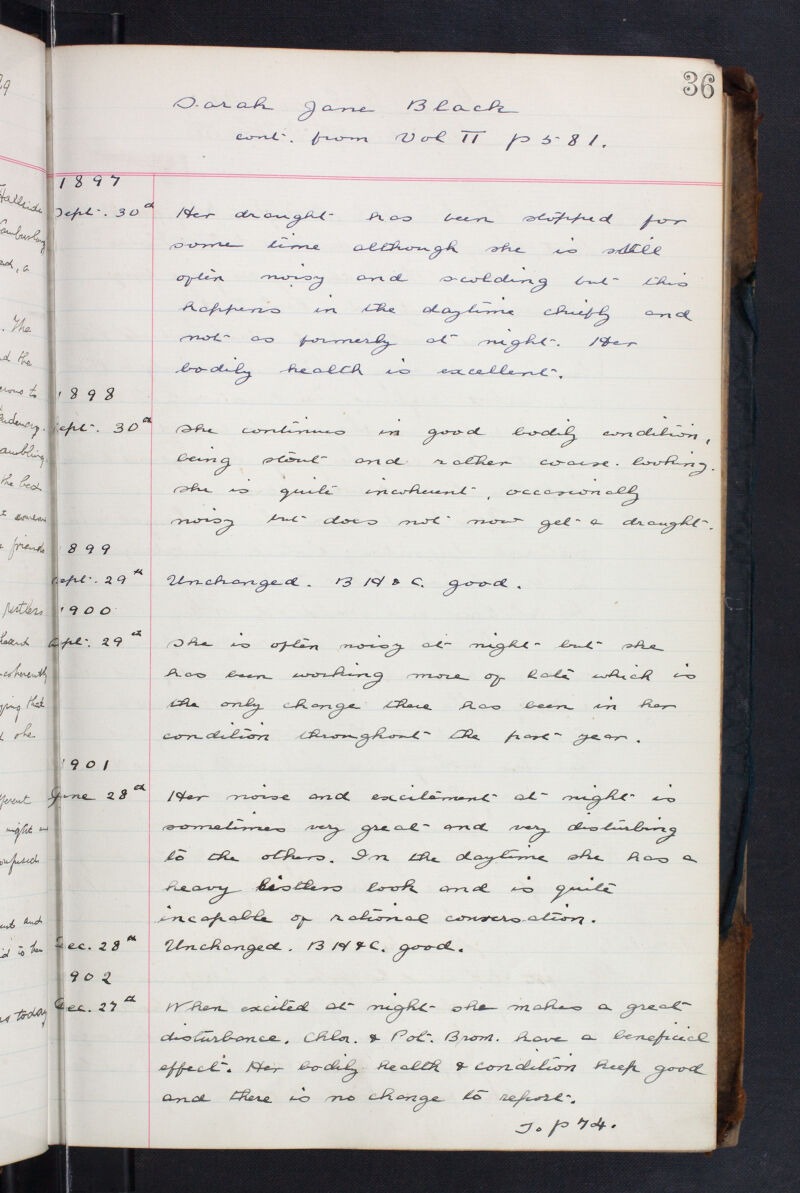 36
Sarah Jane Black
cont. from Vol II p 581.
1897
Sept. 30th Her draught has been stopped for
some time although she is still
often noisy and scolding but this
happens in the daytime chiefly and
not as formerly at night. Her
bodily health is excellent.
1898
Sept. 30th She continues in good bodily condition,
being stout and rather coarse-looking.
She is quite incoherent, occasionally
noisy but does not now get a draught.
1899
Sept. 29th Unchanged. B H & C. good.
1900
Sept. 29th She is often noisy at night but she
has been working more of late which is
the only change there has been in her
condition throughout the past year.
1901
June 28th Her noise and excitement at night is
sometimes very great and very disturbing
to the others. In the daytime she has a
heavy listless look and is quite
incapable of rational conversation.
Dec. 28th Unchanged. B H & C. good.
1902
Dec. 27th When excited at night she makes a great
disturbance. Chlor. & Pot. Brom. have a beneficial
effect. Her bodily health & condition keep good
and there is no change to report.
To p 74.